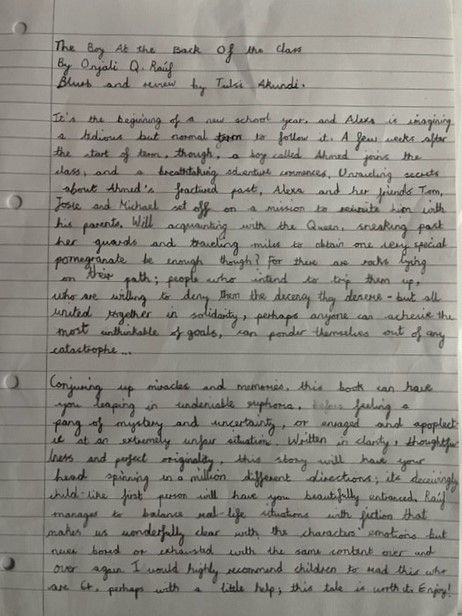 The Boy At the Back Of the Class
By Onjali Q. Raúf
Blurb and review by Tulsi Akundi.
It's the beginning of a new school year, and Alexa is imagining
a tedious but normal term to follow it. A few weeks after
the start of term, though, a boy called Ahmed joins the
class, and a breathtaking adventure commences. Unraveling secrets
about Ahmed's fractured past, Alexa and her friends Tom,
Josie and Michael set off on a mission to reunite him with
his parents. Will acquainting with the Queen, sneaking past
her guards and traveling miles to obtain one very special
pomegranate be enough though? For there are rocks lying
on their path; people who intend to trip them up,
who are willing to deny them the decency they deserve - but all
united together in solidarity, perhaps anyone can achieve the
most unthinkable of goals, can ponder themselves out of any
catastrophe...
Conjuring up miracles and memories, this book can have
you leaping in undeniable euphoria, feeling a
pang of mystery and uncertainty, or enraged and apoplect-
ic at an extremely unfair situation. Written in clarity, thoughtful
lness and perfect originality, this story will have your
head spinning in a million different directions; its deceivingly
child-like first person will have you beautifully entranced. Raúf
manages to balance real-life situations with fiction that
makes us wonderfully clear with the characters' emotions but
never bored or exhausted with the same content over and
over again. I would highly recommend children to read this who
are 6+, perhaps with a little help; this tale is worth it. Enjoy!